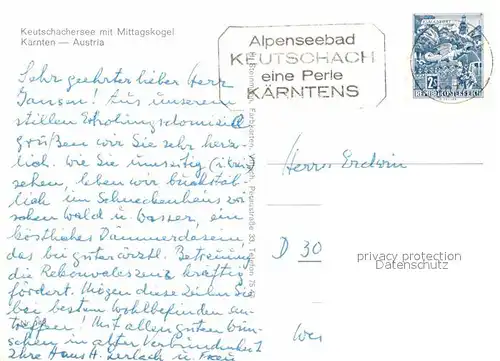 Keutschachersee mit Mittagskogel
Kärnten — Austria
Alpenseebad
KEUTSCHACH
eine Perle
KÄRNTENS
Sehr geehrter lieber Herr
Jansen! Aus unserem
stillen Erholungsdomizil
grüßen wir Sie sehr herz
lich. Wie Sie umseitig
sehen, leben wir buchstäb-
lich im Schneckenhaus zwi
schen Wald u. Wasser, ein
köstliches Dämmerdasein,
das bei guter ärztl. Betreuung
die Rekonvaleszenz kräftig
fördert. Mögen diese Zeilen Sie
bei bestem Wohlbefinden an-
treffen! Mit allen guten Wün
schen in alter Verbundenheit
Ihr Hans H. Gerlach u. Frau
Herrn Erdwin
D 30
Wer
2 S
REPUBLIK ÖSTERREICH
privacy protection
Datenschutz